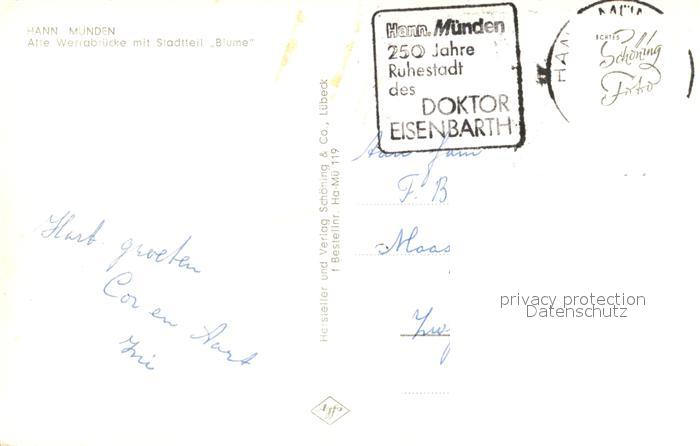 HANN. MÜNDEN
Alte Werrabrücke mit Stadtteil „Blume"
Hann. Münden
250 Jahre
Ruhestadt
des
DOKTOR
EISENBARTH
ECHTES
Schöning
Foto
Hersteller und Verlag Schöning & Co., Lübeck
Bestellnr. Ha-Mü 119
Aan Fam
F. B
Maas
Hart. groeten
Cor en Aart
privacy protection
Datenschutz
Agfa